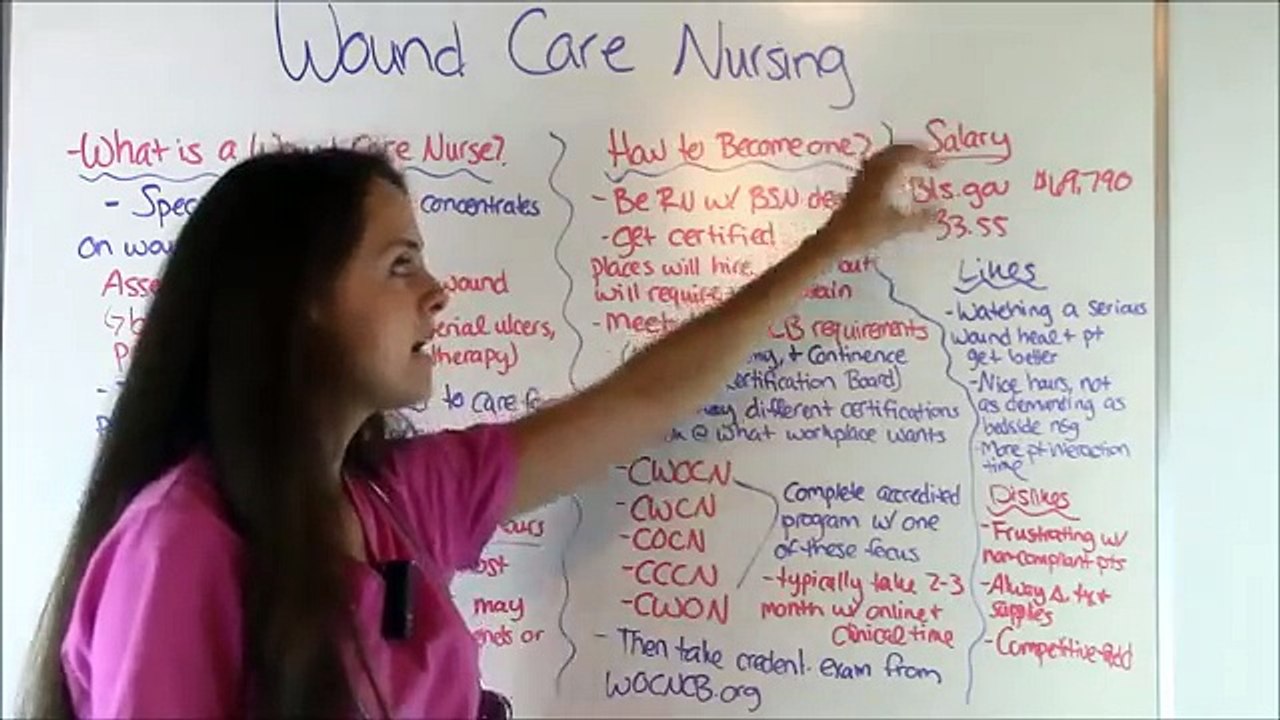 Wound Care Nursing
-What is a Wound Care Nurse?
- Spec concentrates
on wou
Asse wound
erial ulcers,
therapy)
to care fo
ours
ost
may
ends or
How to Become one?
- Be RN w/ BSN de
- get certified
places will hire out
will require ain
-Meet CB requirements
ng, + Continence
ertification Board)
different certifications
@ what workplace wants
-CWOCN
-CWCN
-COCN
-CCCN
-CWON
Complete accredited
program w/ one
of these focus
-typically take 2-3
month w/ online +
Clinical time
- Then take credent. exam from
WOCNCB.org
Salary
Bls.gov $69,790
33.55
Likes
-Watching a serious
wound heal + pt
get better
-Nice hours, not
as demanding as
bedside nsg
-More pt interaction
time
Dislikes
-Frustrating w/
non-compliant pts
-Always Δ. tx +
supplies
-Competitive field